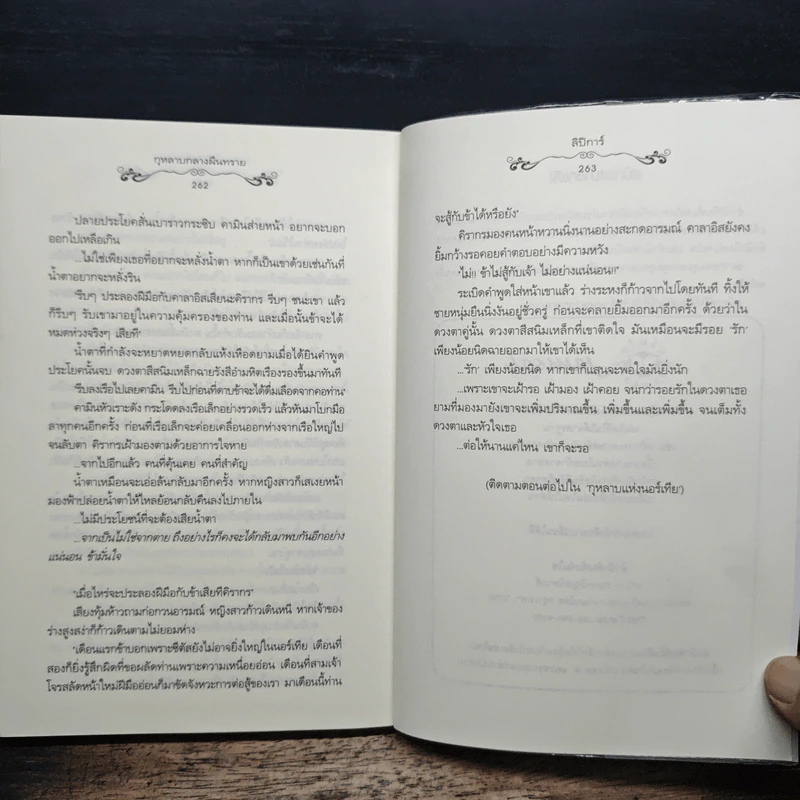 กุหลาบกลางผืนทราย
262
ปลายประโยคสั่นเบาราวกระซิบ คามินส่ายหน้า อยากจะบอก
ออกไปเหลือเกิน
...ไม่ใช่เพียงเธอที่อยากจะหลั่งน้ำตา หากก็เป็นเขาด้วยเช่นกันที่
น้ำตาอยากจะหลั่งริน
"รีบๆ ประลองฝีมือกับคาลาอิสเสียนะคิรากร รีบๆ ชนะเขา แล้ว
ก็รีบๆ รับเขามาอยู่ในความคุ้มครองของท่าน และเมื่อนั้นข้าจะได้
หมดห่วงจริงๆ เสียที"
น้ำตาที่กำลังจะหยาดหยดกลับแห้งเหือดยามเมื่อได้ยินคำพูด
ประโยคนั้นจบ ดวงตาสีสนิมเหล็กฉายรังสีอำมหิตเรืองรองขึ้นมาทันที
"รีบลงเรือไปเลยคามิน รีบไปก่อนที่ดาบข้าจะได้ดื่มเลือดจากคอท่าน"
คามินหัวเราะดัง กระโดดลงเรือเล็กอย่างรวดเร็ว แล้วหันมาโบกมือ
ลาทุกคนอีกครั้ง ก่อนที่เรือเล็กจะค่อยเคลื่อนออกห่างจากเรือใหญ่ไป
จนลับตา คิรากรเฝ้ามองตามด้วยอาการใจหาย
...จากไปอีกแล้ว คนที่คุ้นเคย คนที่สำคัญ
น้ำตาเหมือนจะเอ่อล้นกลับมาอีกครั้ง หากหญิงสาวก็เสเงยหน้า
มองฟ้าปล่อยน้ำตาให้ไหลย้อนกลับคืนลงไปภายใน
...ไม่มีประโยชน์ที่จะต้องเสียน้ำตา
...จากเป็นไม่ใช่จากตาย ถึงอย่างไรก็คงจะได้กลับมาพบกันอีกอย่าง
แน่นอน ข้ามั่นใจ
"เมื่อไหร่จะประลองฝีมือกับข้าเสียทีคิรากร"
เสียงทุ้มห้าวถามก่อกวนอารมณ์ หญิงสาวก้าวเดินหนี หากเจ้าของ
ร่างสูงสง่าก็ก้าวเดินตามไม่ยอมห่าง
"เดือนแรกข้าบอกเพราะซีตัสยังไม่อาจยิ่งใหญ่ในนอร์เทีย เดือนที่
สองก็ยิ่งรู้สึกผิดที่ขอผลัดท่านเพราะความเหนื่อยอ่อน เดือนที่สามเจ้า
โจรสลัดหน้าใหม่ฝีมืออ่อนก็มาขัดจังหวะการต่อสู้ของเรา มาเดือนนี้ท่าน
ลิปิการ์
263
จะสู้กับข้าได้หรือยัง"
คิรากรมองคนหน้าหวานนิ่งนานอย่างสะกดอารมณ์ คาลาอิสยังคง
ยิ้มกว้างรอคอยคำตอบอย่างมีความหวัง
"ไม่!! ข้าไม่สู้กับเจ้า ไม่อย่างแน่นอน!!"
ระเบิดคำพูดใส่หน้าเขาแล้ว ร่างระหงก็ก้าวจากไปโดยทันที ทิ้งให้
ชายหนุ่มยืนนิ่งงันอยู่ชั่วครู่ ก่อนจะคลายยิ้มออกมาอีกครั้ง ด้วยว่าใน
ดวงตาคู่นั้น ดวงตาสีสนิมเหล็กที่เขาติดใจ มันเหมือนจะมีรอย 'รัก'
เพียงน้อยนิดฉายออกมาให้เขาได้เห็น
...'รัก' เพียงน้อยนิด หากเขาก็แสนจะพอใจมันยิ่งนัก
...เพราะเขาจะเฝ้ารอ เฝ้ามอง เฝ้าคอย จนกว่ารอยรักในดวงตาเธอ
ยามที่มองมายังเขาจะเพิ่มปริมาณขึ้น เพิ่มขึ้นและเพิ่มขึ้น จนเต็มทั้ง
ดวงตาและหัวใจเธอ
...ต่อให้นานแค่ไหน เขาก็จะรอ
(ติดตามตอนต่อไปใน 'กุหลาบแห่งนอร์เทีย')